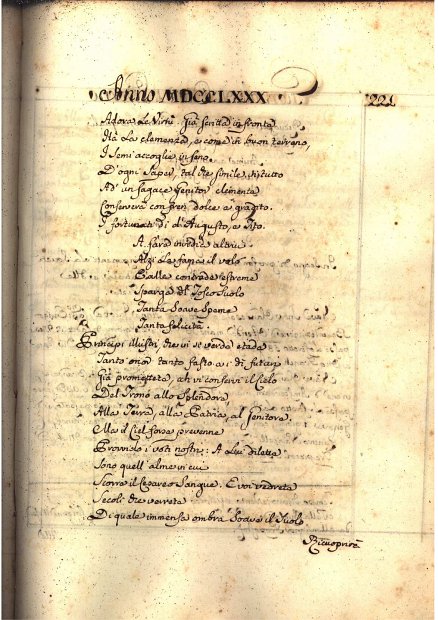 Anno MDCCLXXX 221
Adora Le Virtù. Già scritta in fronte
Ha La clemenza, e come in buon terreno,
I semi accoglie in seno
D'ogni Saper, tal che simile in tutto
Ad un sagace Genitor clemente
Conserverà con fren dolce e gradito
I fortunati dì d'Augusto, e Tito.
A farà invidia altrui
Alzi La fama il volo
E alle contrade estreme
Sparga del Tosco Suolo
Tanta Soave Speme
Tanta felicità
Principi illustri che in sì verde etade
Tanto onor tanto fasto ai dì futuri
Già promettete, ah vi conservi il Cielo
Del Trono allo Splendore,
Alla Terra, alla Patria, al Genitore.
Ma il Ciel forse prevenne
Provvido i voti nostri: A Lui dilette
Sono quell'alme in cui
Scorre il Cesareo Sangue. E voi vedrete
Secoli che verrete
Di quale immensa ombra Soave il Suolo
Ricuoprirà